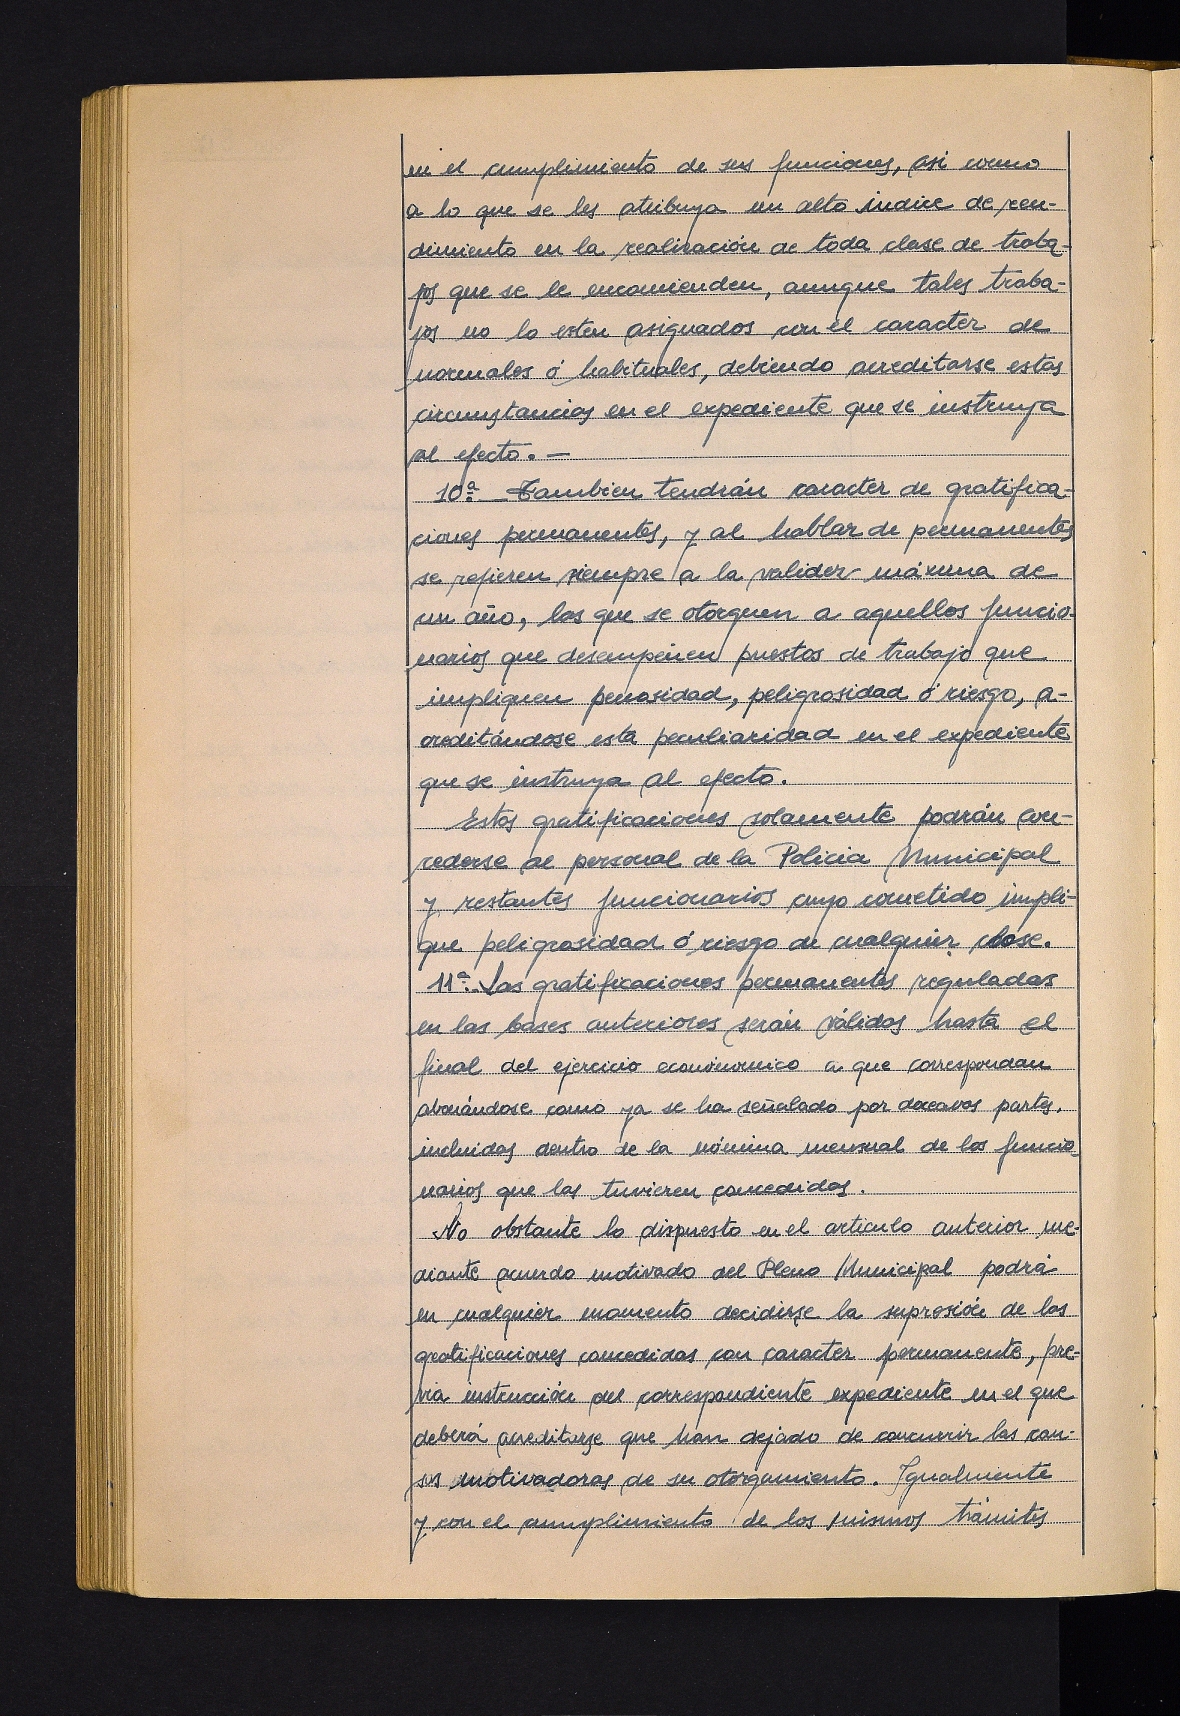 en el cumplimiento de sus funciones, asi como
a lo que se les atribuya un alto indice de ren-
dimiento en la realización de toda clase de traba-
jos que se le encomienden, aunque tales traba-
jos no lo esten asignados con el caracter de
normales ó habituales, debiendo acreditarse estas
circunstancias en el expediente que se instruya
al efecto. —
10ª Tambien tendrán caracter de gratifica-
ciones permanentes, y al hablar de permanentes
se refieren siempre a la validez máxima de
un año, las que se otorguen a aquellos funcio-
narios que desempeñen puestos de trabajo que
impliquen penosidad, peligrosidad ó riesgo, a-
creditándose esta peculiaridad en el expediente
que se instruya al efecto.
Estas gratificaciones solamente podrán con-
cederse al personal de la Policia Municipal
y restantes funcionarios cuyo cometido impli-
que peligrosidad ó riesgo de cualquier clase.
11ª. Las gratificaciones permanentes reguladas
en las bases anteriores serán válidas hasta el
final del ejercicio económico a que correspondan
abonándose como ya se ha señalado por doceavas partes,
incluidas dentro de la nómina mensual de los funcio-
narios que las tuvieren concedidas.
No obstante lo dispuesto en el articulo anterior me-
diante acuerdo motivado del Pleno Municipal podrá
en cualquier momento decidirse la supresión de las
gratificaciones concedidas con caracter permanente, pre-
via instrucción del correspondiente expediente en el que
deberá acreditarse que han dejado de concurrir las cau-
sas motivadoras de su otorgamiento. Igualmente
y con el cumplimiento de los mismos trámites